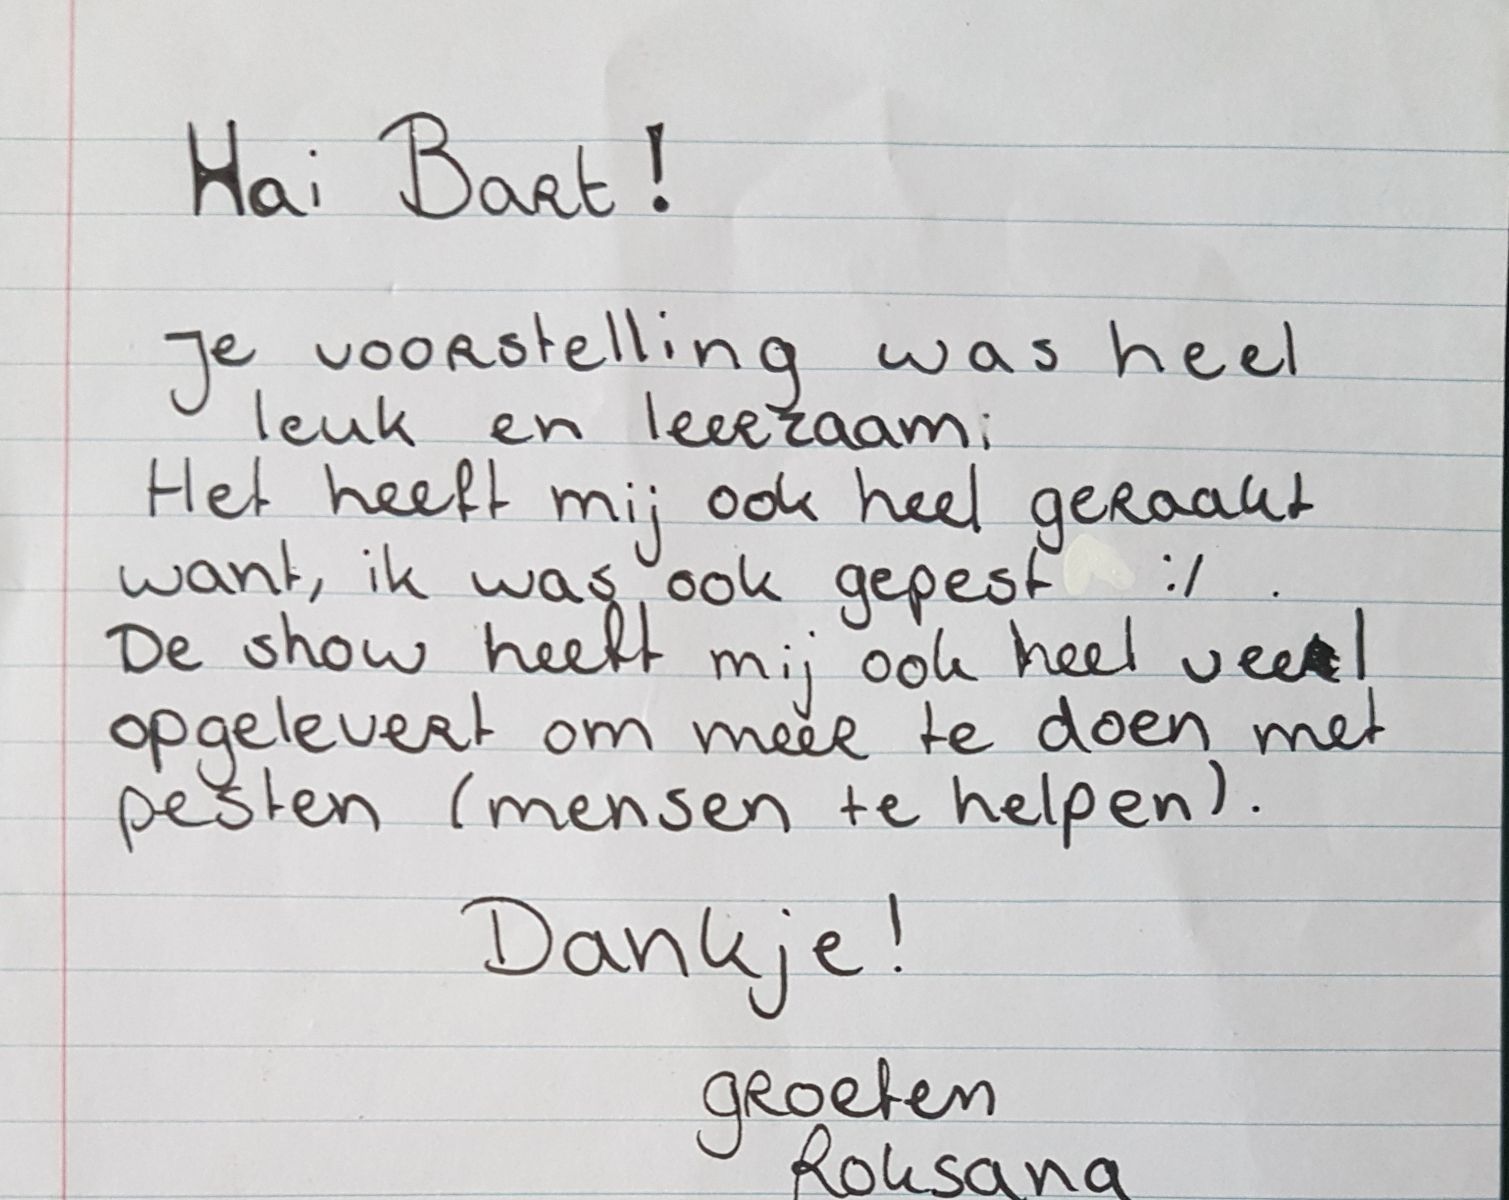 Hai Bart!
Je voorstelling was heel
leuk en leerzaam;
Het heeft mij ook heel geraakt
want, ik was ook gepest :/ .
De show heeft mij ook heel veel
opgelevert om meer te doen met
pesten (mensen te helpen).
Dankje!
groeten
Roksana